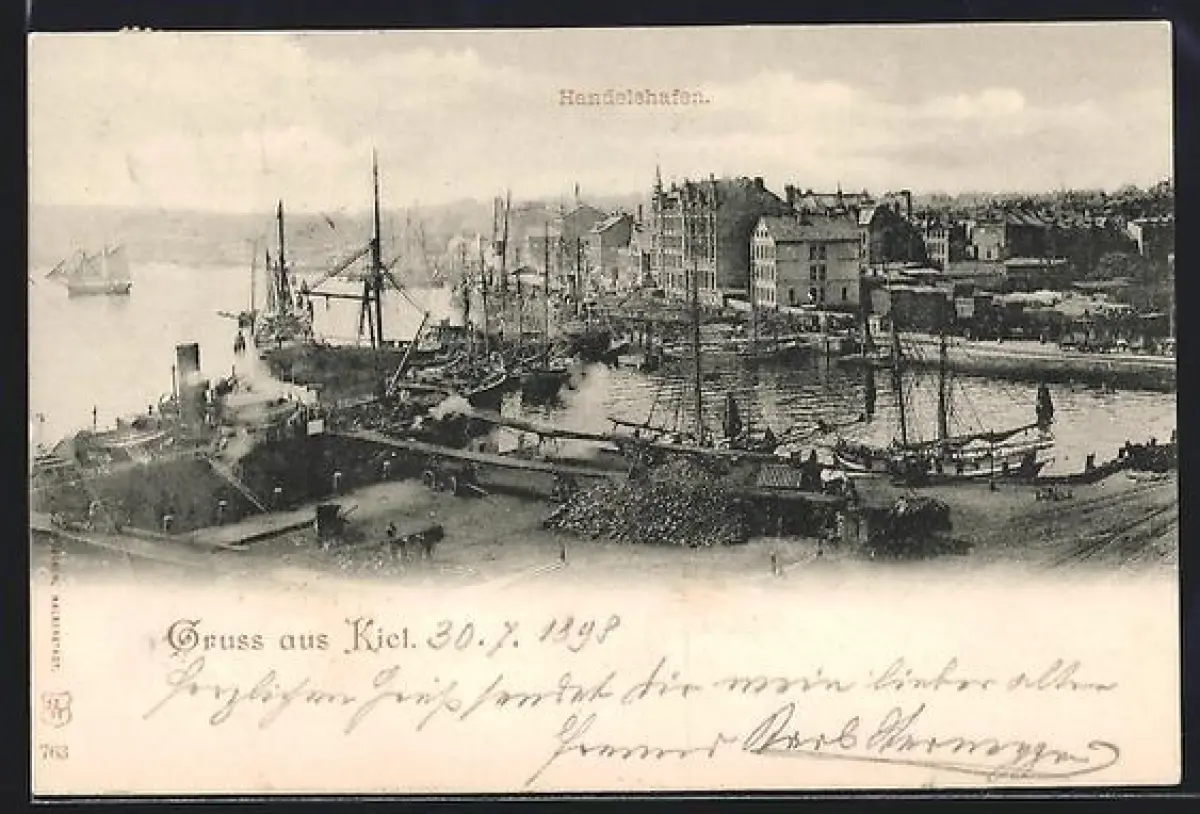 Handelshafen.
Gruss aus Kiel. 30.7.1898
Herzlichen Gruß sendet dir mein lieber alter
Karl
HALBERSTADT.
763